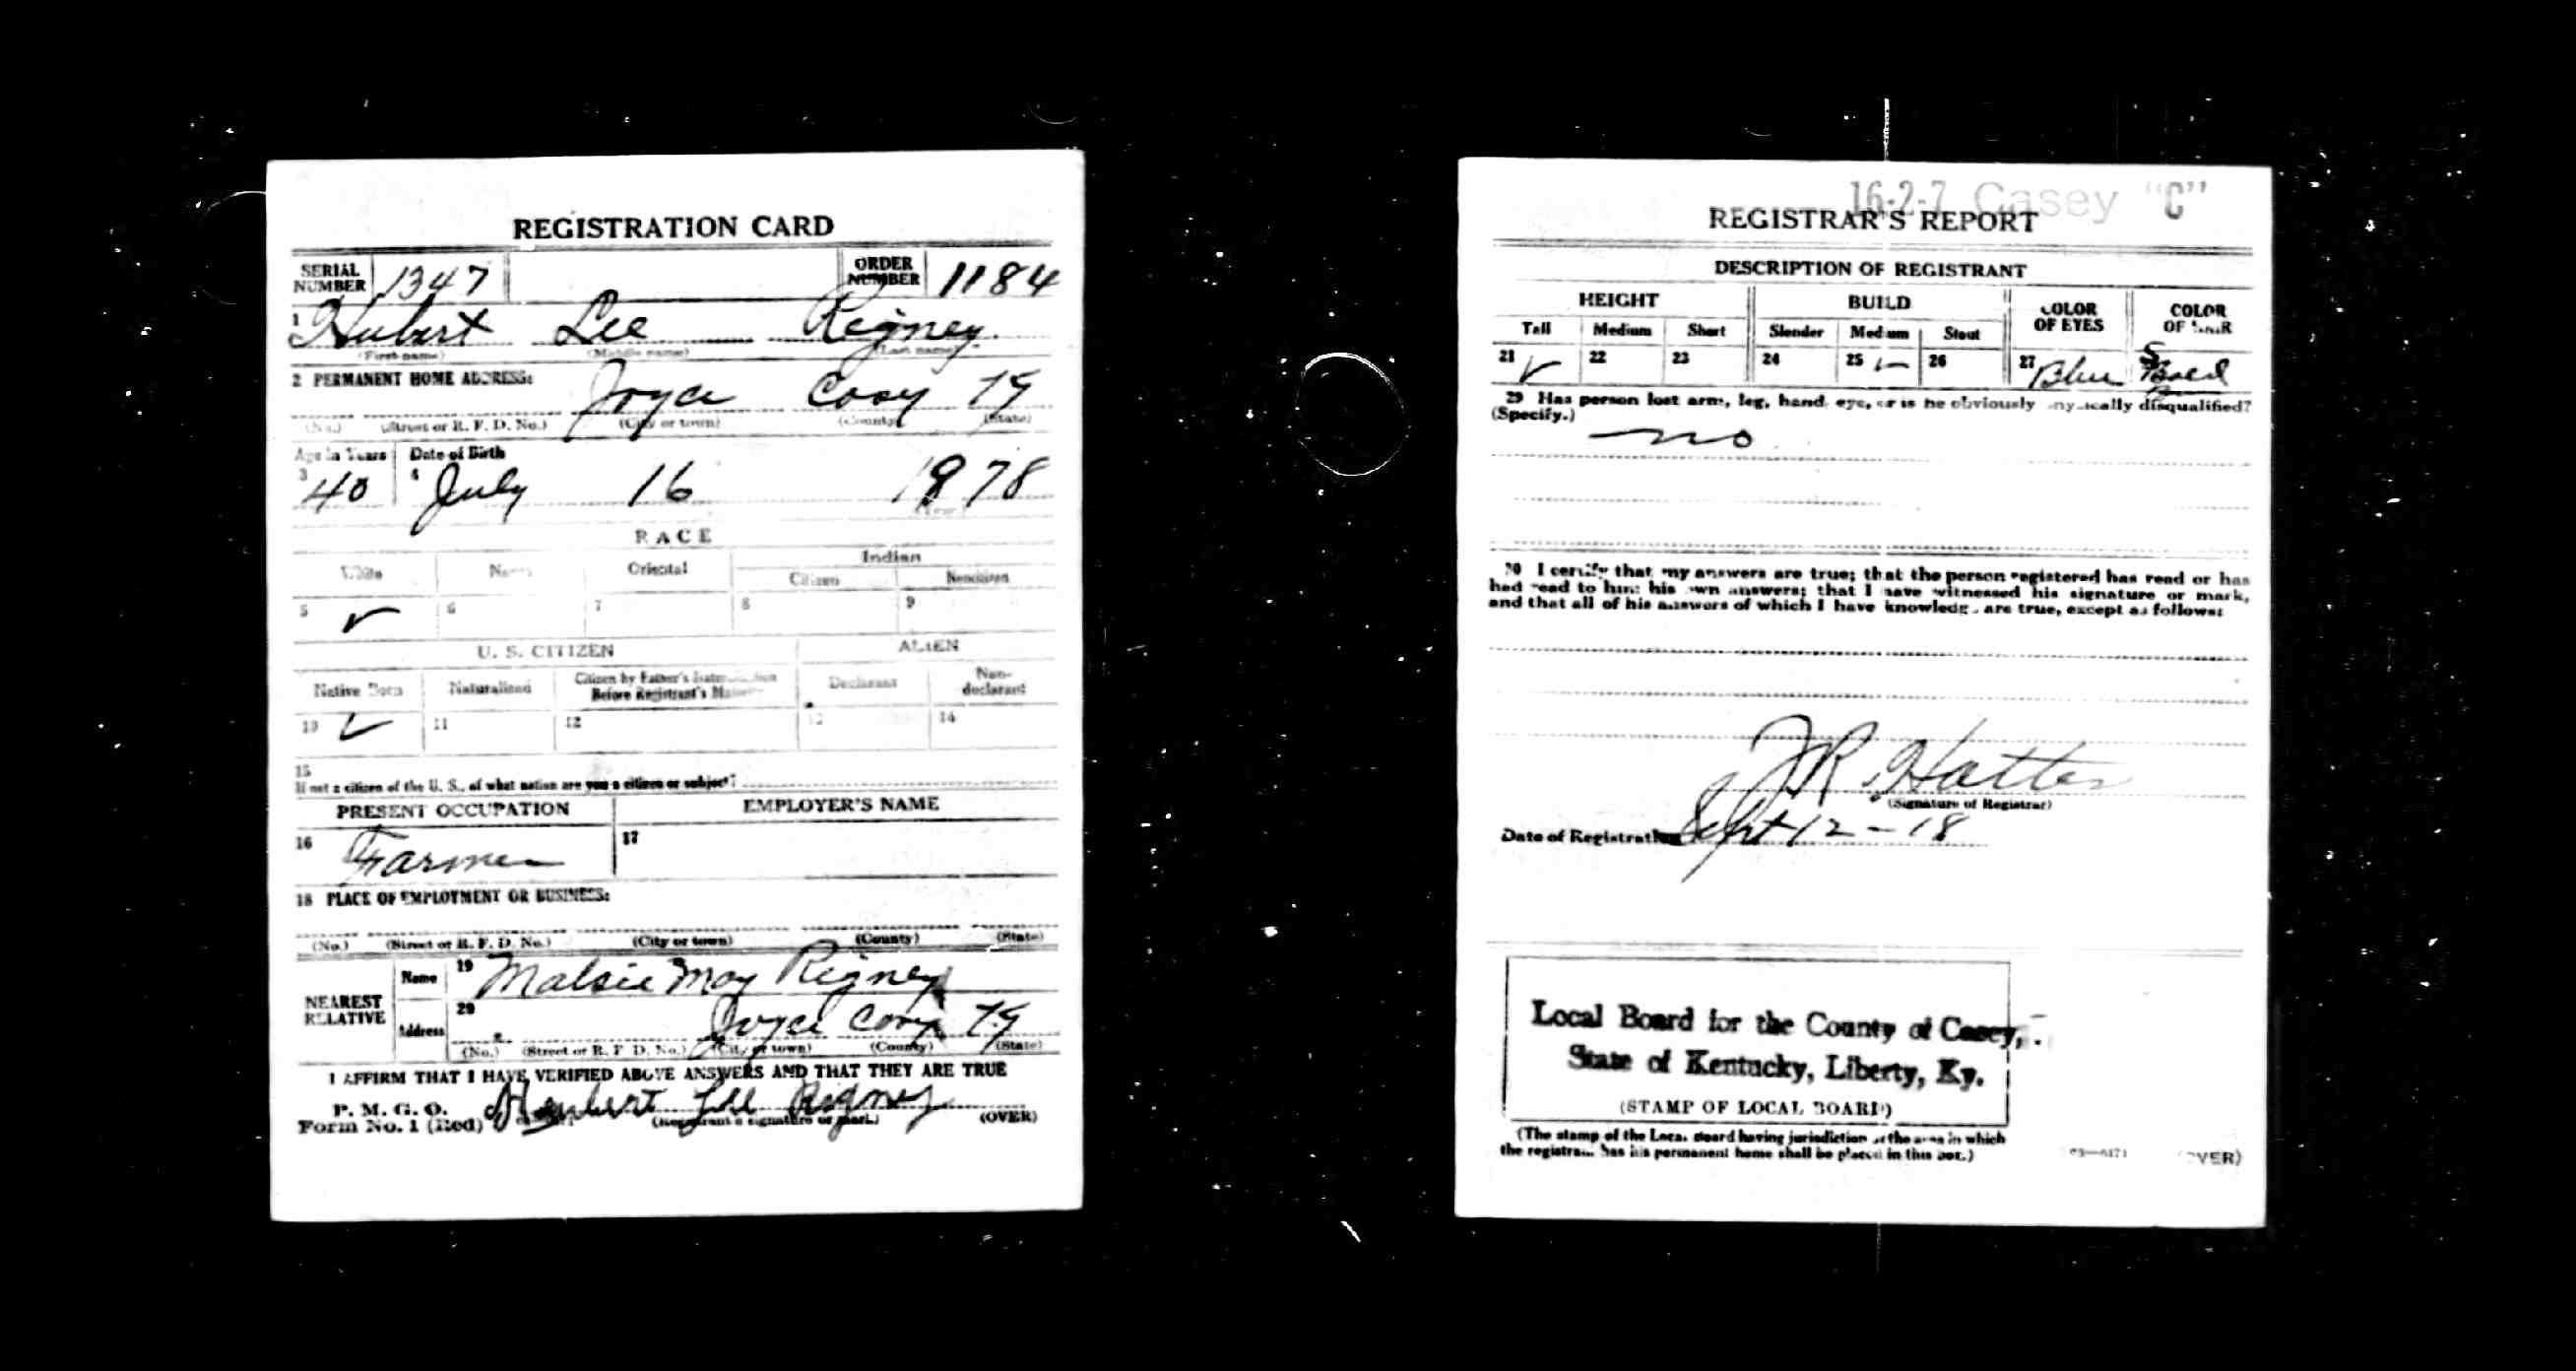 REGISTRATION CARD
SERIAL NUMBER 1347 ORDER NUMBER 1184
1 Hubert Lee Rigney
(First name) (Middle name) (Last name)
2 PERMANENT HOME ADDRESS:
Joyce Casy Ky
(No.) (Street or R. F. D. No.) (City or town) (County) (State)
Age in Years Date of Birth
3 40 4 July 16 1878
(Year)
RACE
White Oriental Indian
Citizen Noncitizen
5 ✓ 6 7 8 9
U. S. CITIZEN ALIEN
Native Born Naturalized Citizen by Father's Before Registrant's Declarant Non-declarant
10 ✓ 11 12 13 14
15
If not a citizen of the U. S., of what nation are you a citizen or subject?
PRESENT OCCUPATION EMPLOYER'S NAME
16 Farmer 17
18 PLACE OF EMPLOYMENT OR BUSINESS:
(No.) (Street or R. F. D. No.) (City or town) (County) (State)
NEAREST RELATIVE
Name 19 Malsie May Rigney
Address 20 Joyce Casy Ky
(No.) (Street or R. F. D. No.) (City or town) (County) (State)
I AFFIRM THAT I HAVE VERIFIED ABOVE ANSWERS AND THAT THEY ARE TRUE
P. M. G. O.
Form No. 1 (Red) Hubert Lee Rigney
(Registrant's signature or mark) (OVER)
16-2-7 Casey "C"
REGISTRAR'S REPORT
DESCRIPTION OF REGISTRANT
HEIGHT BUILD COLOR OF EYES COLOR OF HAIR
Tall Medium Short Slender Medium Stout
21 ✓ 22 23 24 25 ✓ 26 27 Blue
29 Has person lost arm, leg, hand, eye, or is he obviously physically disqualified?
(Specify.)
no
30 I certify that my answers are true; that the person registered has read or has
had read to him his own answers; that I have witnessed his signature or mark,
and that all of his answers of which I have knowledge are true, except as follows:
J R Hatter
(Signature of Registrar)
Date of Registration Sept 12 - 18
Local Board for the County of Casey,
State of Kentucky, Liberty, Ky.
(STAMP OF LOCAL BOARD)
(The stamp of the Local Board having jurisdiction of the area in which
the registrant has his permanent home shall be placed in this box.)
(OVER)